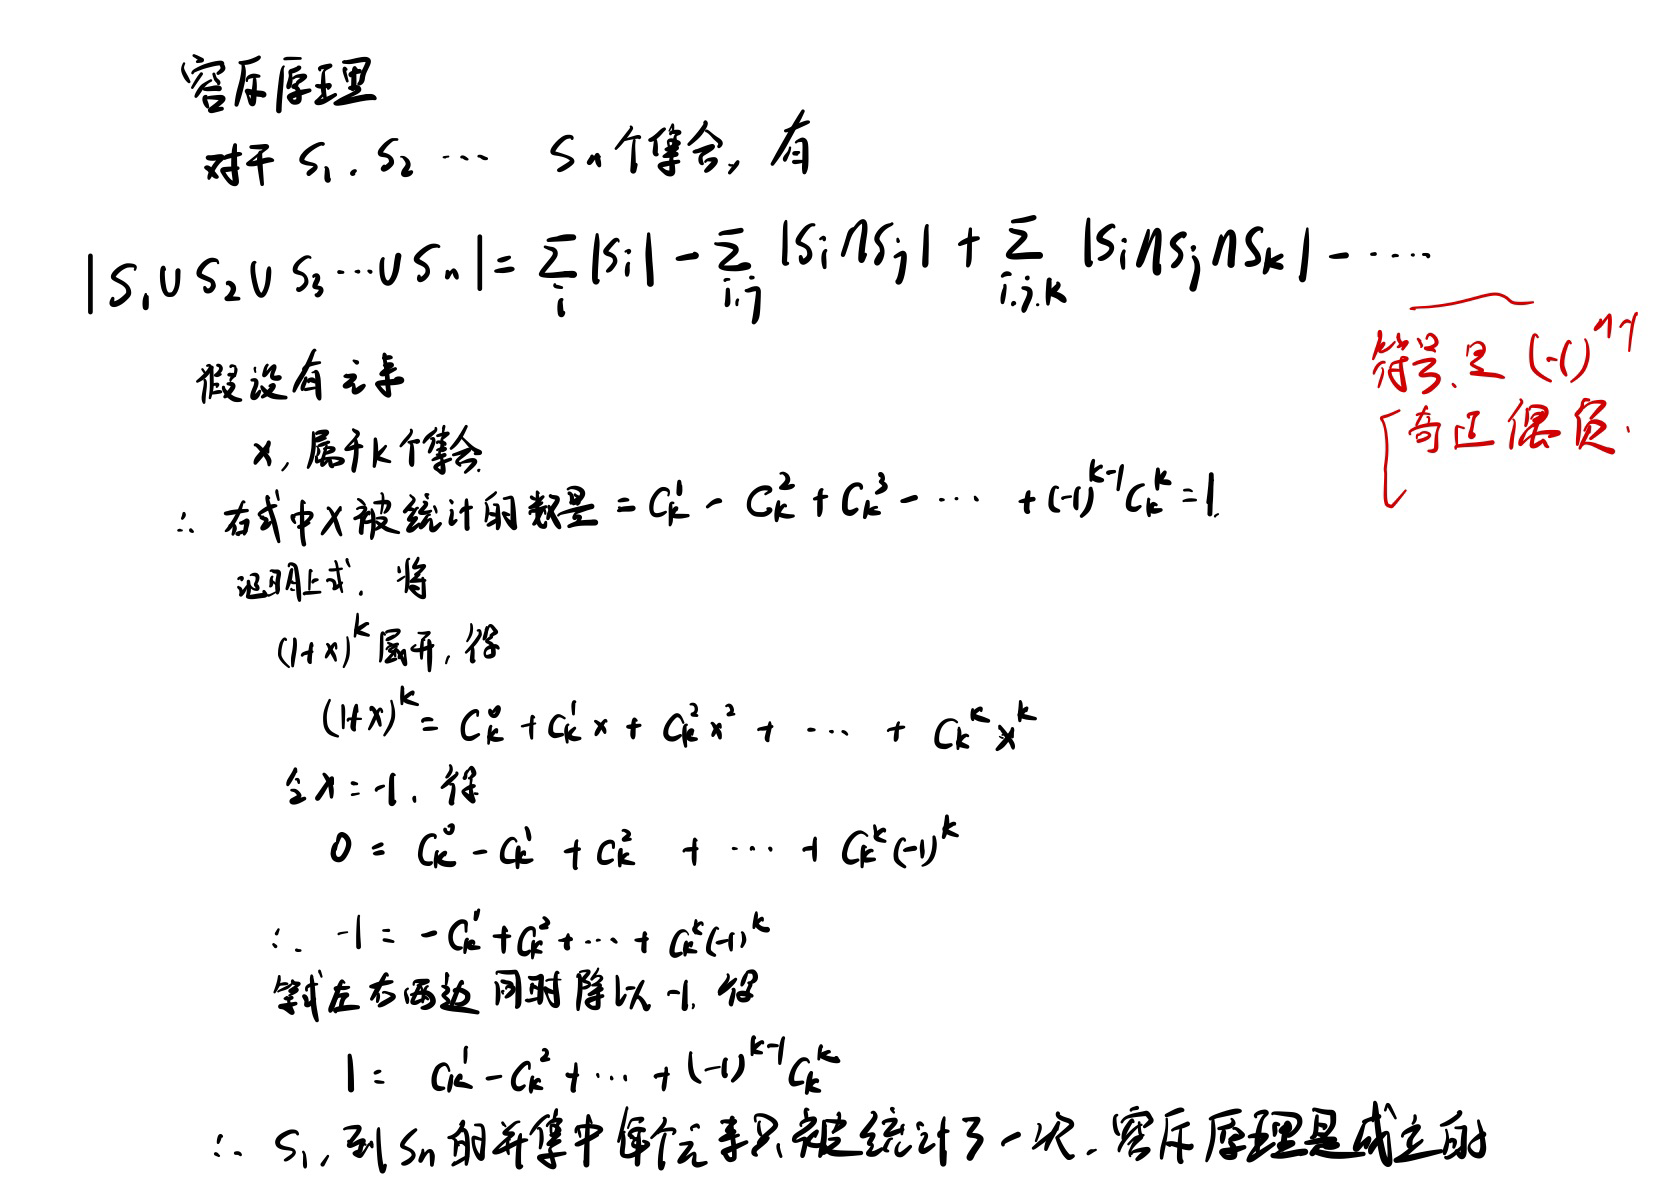 容斥原理
对于 S₁. S₂ ··· Sₙ个集合, 有
|S₁∪S₂∪S₃···∪Sₙ| = ∑ᵢ|Sᵢ| - ∑ᵢ.ⱼ |Sᵢ∩Sⱼ| + ∑ᵢ.ⱼ.ₖ |Sᵢ∩Sⱼ∩Sₖ| - ····
符号是 (-1)ⁿ⁻¹
奇正偶负.
假设有元素
x, 属于k个集合.
∴ 右式中x被统计的数量 = Cₖ¹ - Cₖ² + Cₖ³ - ··· + (-1)ᵏ⁻¹Cₖᵏ = 1.
证明上式. 将
(1+x)ᵏ展开, 得
(1+x)ᵏ = Cₖ⁰ + Cₖ¹x + Cₖ²x² + ··· + Cₖᵏxᵏ
令x = -1. 得
0 = Cₖ⁰ - Cₖ¹ + Cₖ² + ··· + Cₖᵏ(-1)ᵏ
∴ -1 = -Cₖ¹ + Cₖ² + ··· + Cₖᵏ(-1)ᵏ
等式左右两边同时除以-1. 得
1 = Cₖ¹ - Cₖ² + ··· + (-1)ᵏ⁻¹Cₖᵏ
∴ S₁, 到Sₙ的并集中每个元素只被统计了一次. 容斥原理是成立的